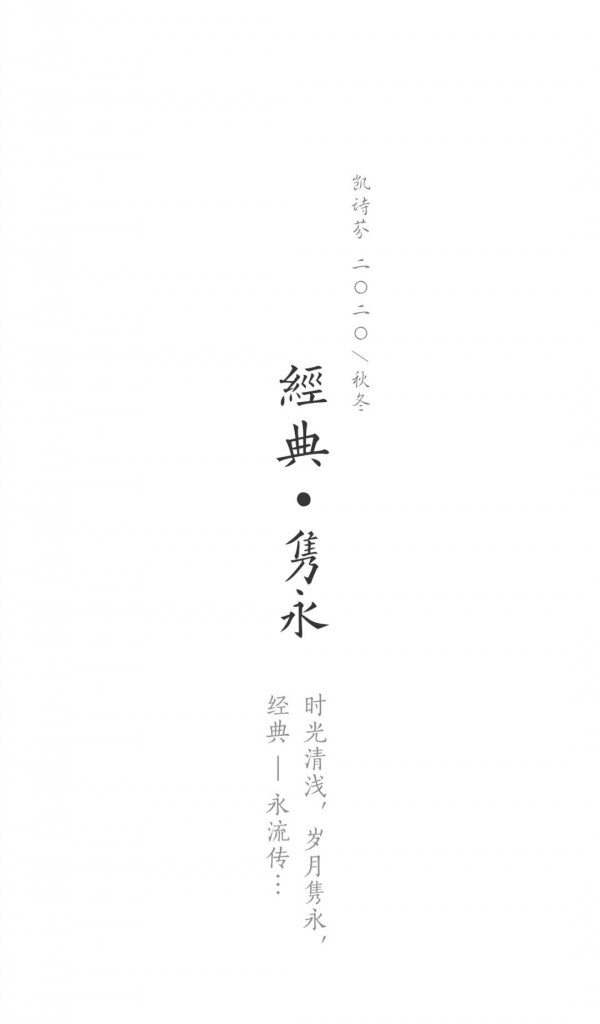 凯诗芬 二〇二〇/秋冬
經典·隽永
时光清浅，岁月隽永，
经典—永流传…